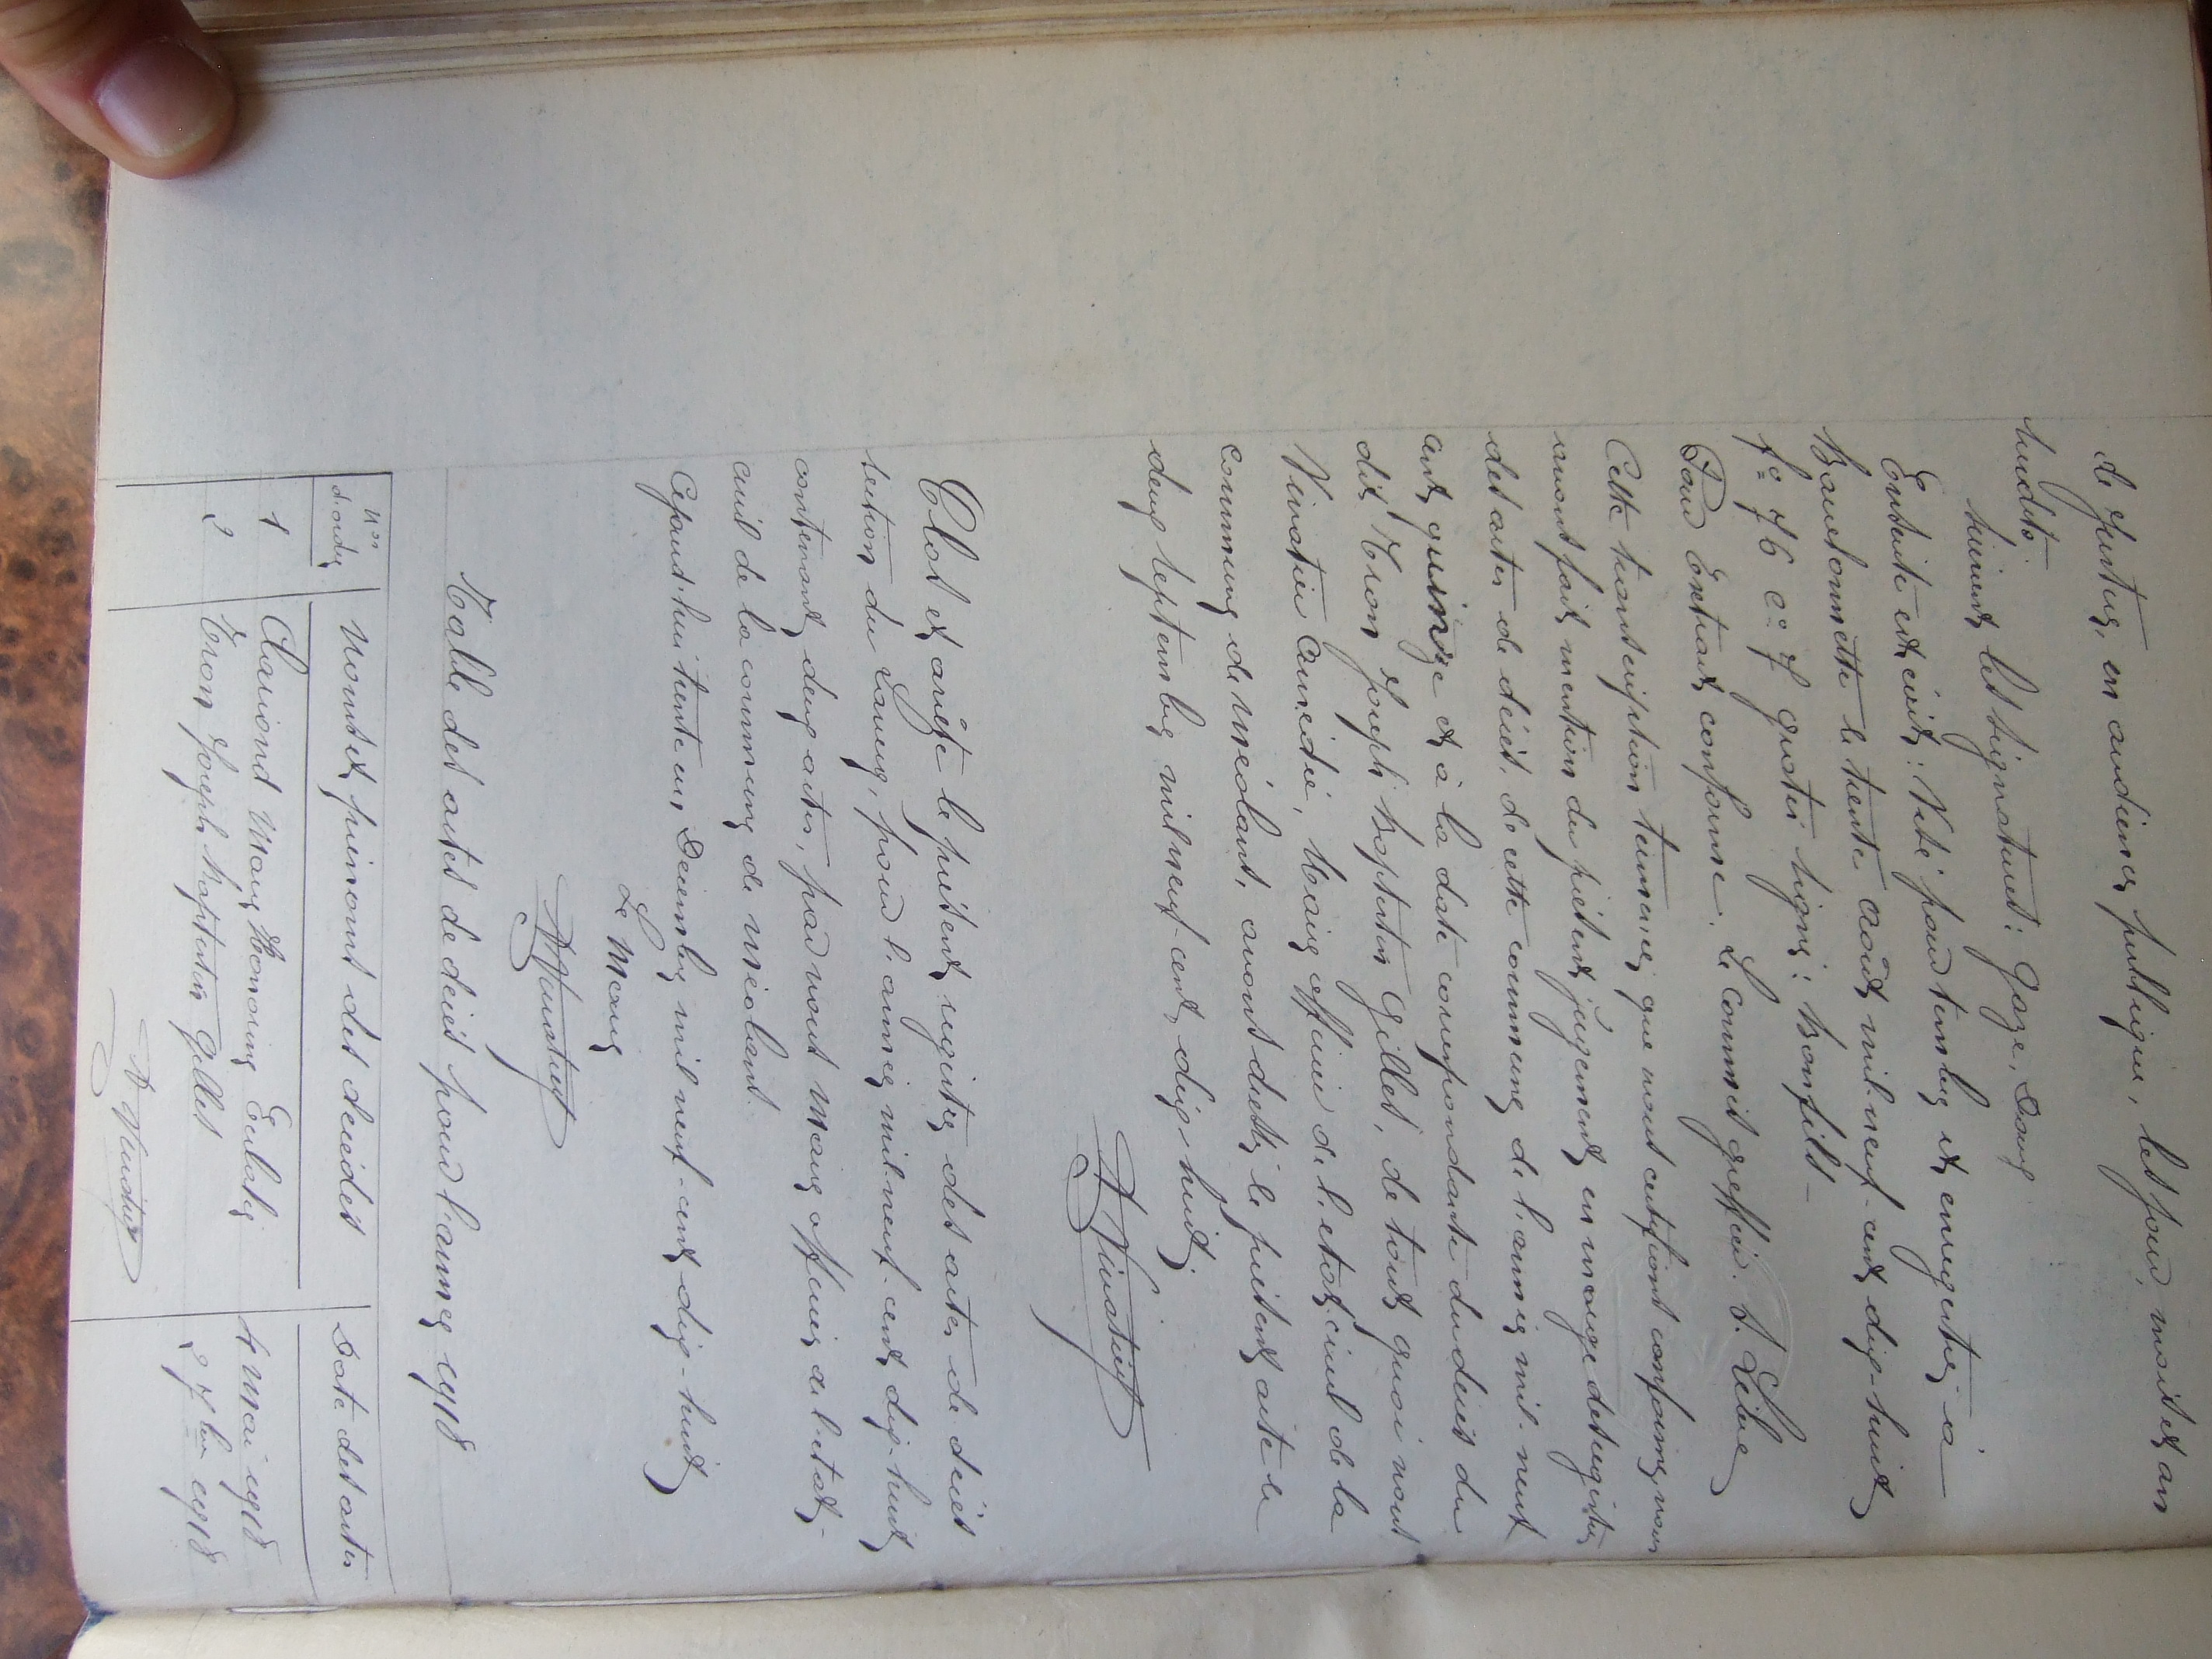 de Justice, en audience publique, les jour, mois et an
susdits.
Suivent les signatures: Gaze, Daux
Ensuite est écrit: Visé pour timbre et enregistré à
Barcelonnette le trente août mil neuf cent dix-huit
f° 76 c° 7 gratis signé: Bonfils -
Pour Extrait conforme. Le Commis greffier.
Cette transcription terminée que nous certifions conforme, nous
avons fait mention du présent jugement en marge des registres
des actes de décès, de cette commune de l'année mil neuf
cent quinze et à la date correspondante du décès du
dit Tron Joseph Baptistin Gillet, de tout quoi nous
Amédée, Maire officier de l'état civil de la
commune de Méolans, avons dressé le présent acte le
deux septembre mil neuf cent dix-huit,
Clos et arrêté le présent registre des actes de décès
section du Laverq, pour l'année mil neuf cent dix-huit
contenant deux actes, par nous Maire officier de l'état-
civil de la commune de Méolans.
Cejourd'hui trente un Décembre mil neuf-cent dix-huit
Le Maire
Table des actes de décès pour l'année 1918
Nos d'ordre Noms et prénoms des décédés Date des actes
1 Clariond Marie Honorine Eulalie 4 Mai 1918
2 Tron Joseph Baptistin Gillet 2 7bre 1918